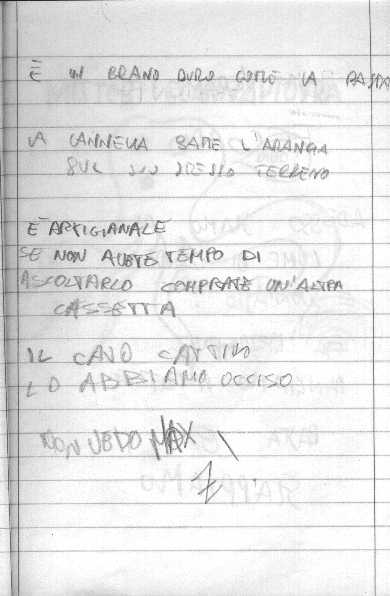 È UN BRANO DURO COME LA PASTA
LA CANNELLA BATTE L'ARANCIA
SUL SUO STESSO TERRENO
È ARTIGIANALE
SE NON AVETE TEMPO DI
ASCOLTARLO COMPRATE UN'ALTRA
CASSETTA
IL CAVO CATTIVO
LO ABBIAMO UCCISO
NON VEDO MAX